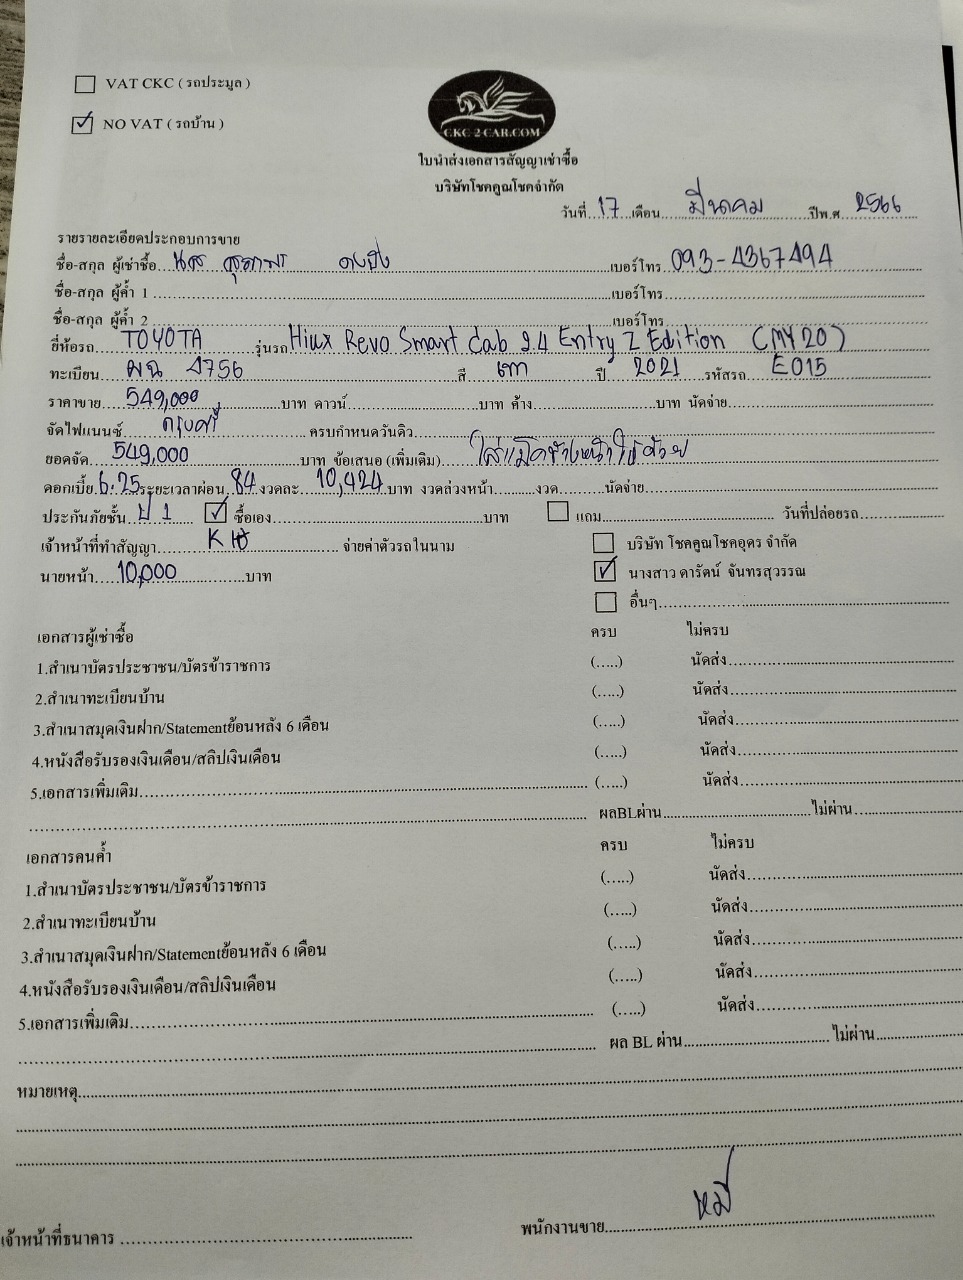 VAT CKC ( รถประมูล )
NO VAT ( รถบ้าน )
CKC-2-CAR.COM
ใบนำส่งเอกสารสัญญาเช่าซื้อ
บริษัทโชคคูณโชคจำกัด
วันที่..17..เดือน...มีนาคม...ปีพ.ศ...2566
รายรายละเอียดประกอบการขาย
ชื่อ-สกุล ผู้เช่าซื้อ...นส...เบอร์โทร..093-4367494
ชื่อ-สกุล ผู้ค้ำ 1...เบอร์โทร...
ชื่อ-สกุล ผู้ค้ำ 2...เบอร์โทร...
ยี่ห้อรถ...TOYOTA...รุ่นรถ Hilux Revo Smart Cab 2.4 Entry Z Edition (MY20)
ทะเบียน...ผฉ 4756...สี...เทา...ปี...2021...รหัสรถ...E015
ราคาขาย...549,000...บาท ดาวน์...บาท ค้าง...บาท นัดจ่าย...
จัดไฟแนนซ์...กรุงศรี...ครบกำหนดวันดิว...
ยอดจัด...549,000...บาท ข้อเสนอ (เพิ่มเติม)...ใส่แม็คข้างหน้าให้ด้วย
ดอกเบี้ย..6.25..ระยะเวลาผ่อน..84..งวดละ...10,424..บาท งวดล่วงหน้า...งวด...นัดจ่าย...
ประกันภัยชั้น...ป 1...ซื้อเอง...บาท แถม...วันที่ปล่อยรถ...
เจ้าหน้าที่ทำสัญญา...จ่ายค่าตัวรถในนาม
บริษัท โชคคูณโชคอุดร จำกัด
นายหน้า...10,000...บาท
นางสาว ดารัตน์ จันทรสุวรรณ
อื่นๆ...
เอกสารผู้เช่าซื้อ ครบ ไม่ครบ
1.สำเนาบัตรประชาชน/บัตรข้าราชการ (.....) นัดส่ง...
2.สำเนาทะเบียนบ้าน (.....) นัดส่ง...
3.สำเนาสมุดเงินฝาก/Statementย้อนหลัง 6 เดือน (.....) นัดส่ง...
4.หนังสือรับรองเงินเดือน/สลิปเงินเดือน (.....) นัดส่ง...
5.เอกสารเพิ่มเติม... (.....) นัดส่ง...
ผลBLผ่าน...ไม่ผ่าน...
เอกสารคนค้ำ ครบ ไม่ครบ
1.สำเนาบัตรประชาชน/บัตรข้าราชการ (.....) นัดส่ง...
2.สำเนาทะเบียนบ้าน (.....) นัดส่ง...
3.สำเนาสมุดเงินฝาก/Statementย้อนหลัง 6 เดือน (.....) นัดส่ง...
4.หนังสือรับรองเงินเดือน/สลิปเงินเดือน (.....) นัดส่ง...
5.เอกสารเพิ่มเติม... (.....) นัดส่ง...
ผล BL ผ่าน...ไม่ผ่าน...
หมายเหตุ...
เจ้าหน้าที่ธนาคาร... พนักงานขาย...หมี